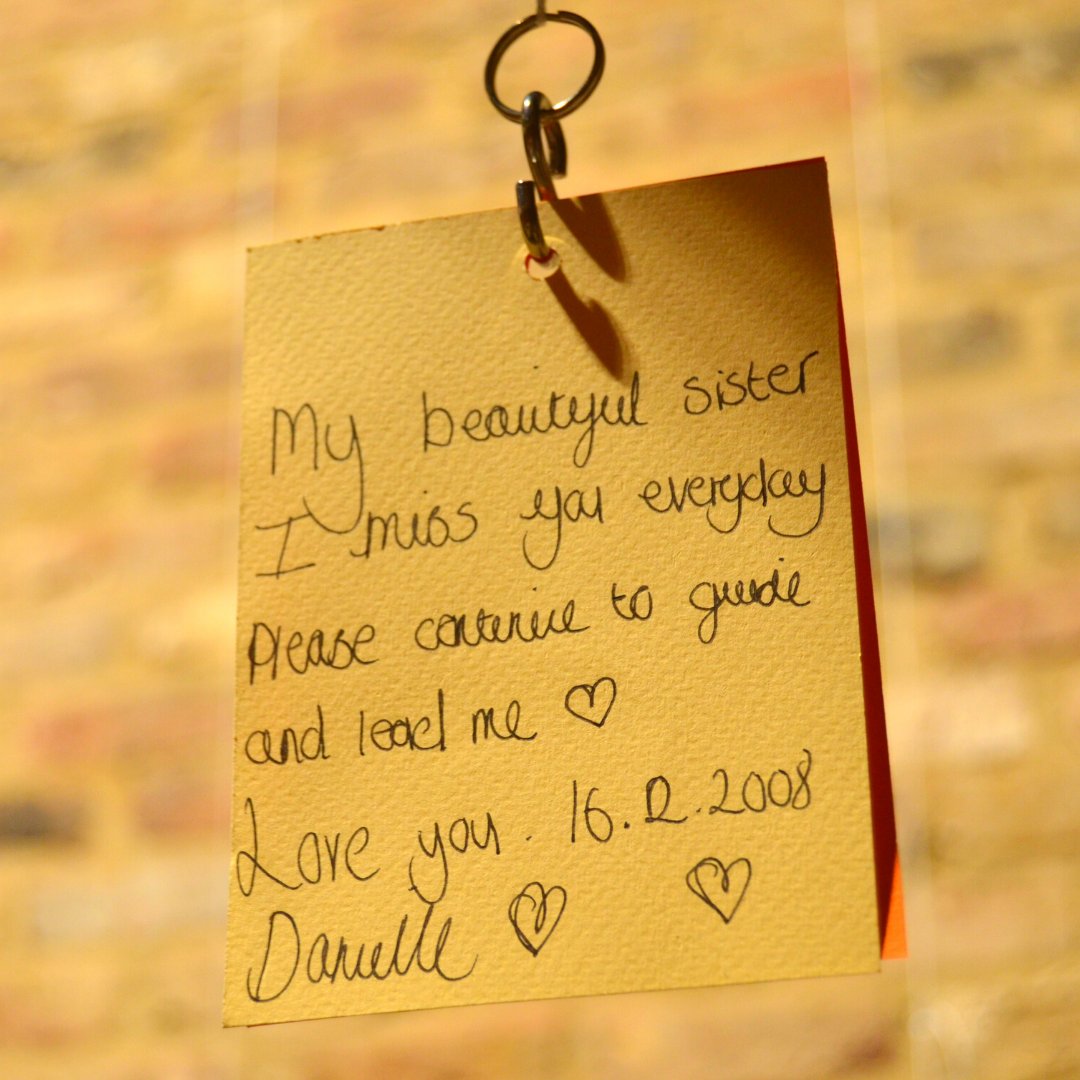 My beautiful sister
I miss you everyday
Please continue to guide
and lead me ♡
Love you. 16.12.2008
Danielle ♡ ♡